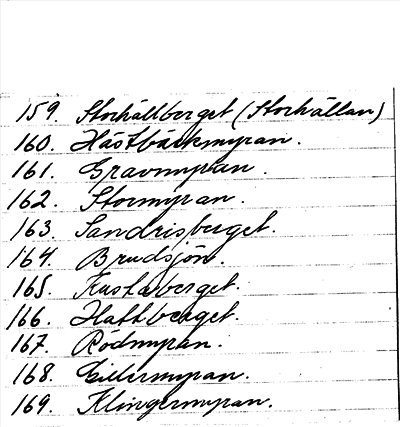 159. Storhällberget (Storhällan)
160. Hästbäckmyran.
161. Gravmyran.
162. Stormyran.
163. Sandrisberget.
164. Brudsjön.
165. Kustaberget.
166.
167. Rödmyran.
168.
169. Klingermyran.